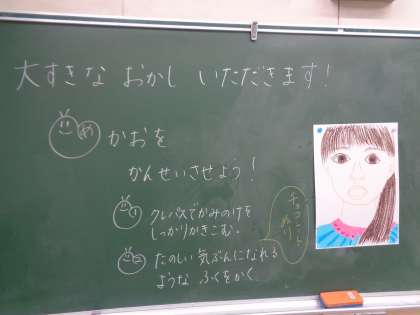 大すきな おかし いただきます！
め かおを
かんせいさせよう！
1 クレパスでかみのけを
しっかりかきこむ。
2 たのしい気ぶんになれる
ような ふくをかく
チョコレート
ぬり